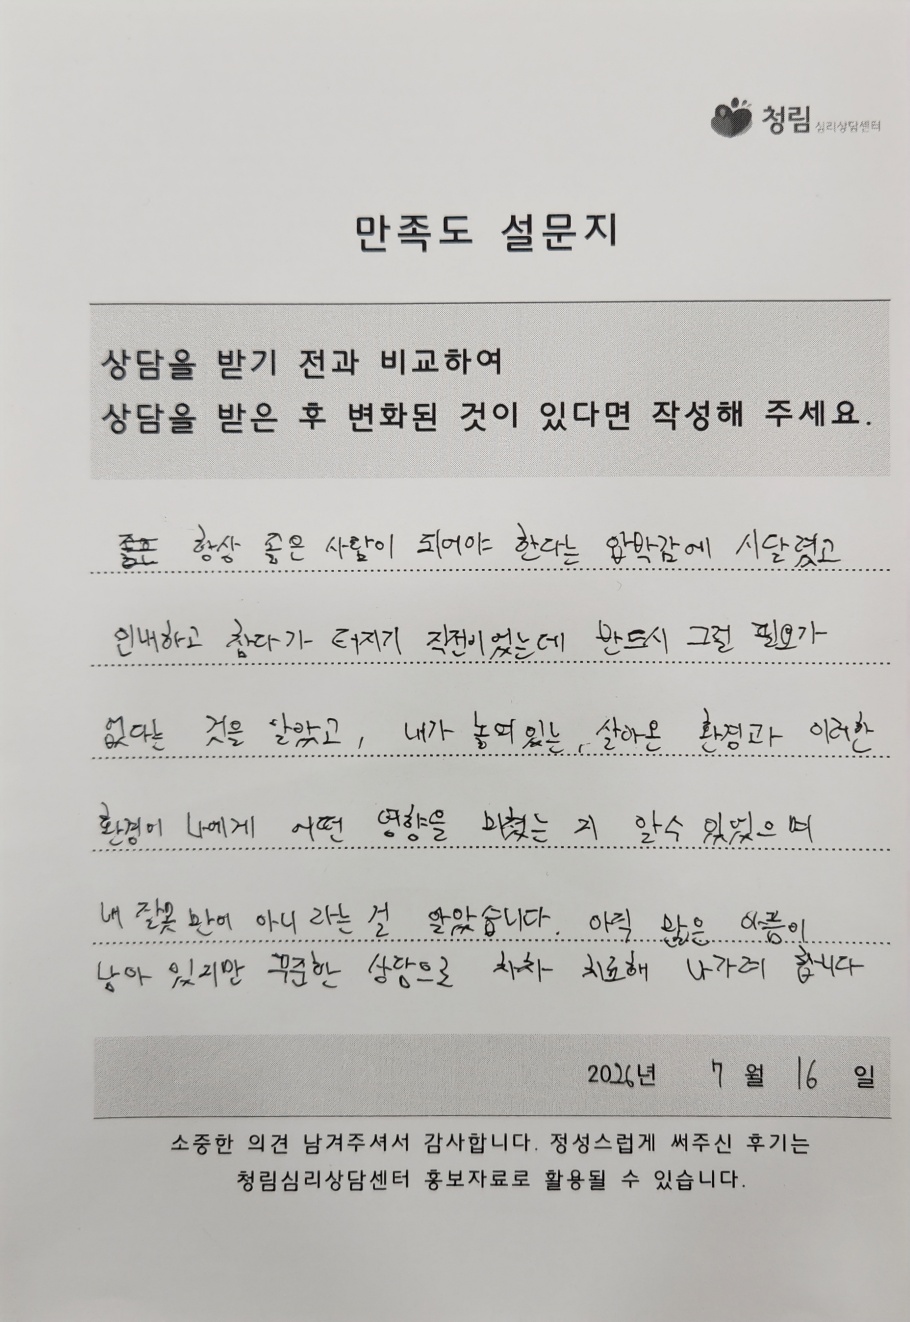 청림 심리상담센터
만족도 설문지
상담을 받기 전과 비교하여
상담을 받은 후 변화된 것이 있다면 작성해 주세요.
항상 좋은 사람이 되어야 한다는 압박감에 시달렸고
인내하고 참다가 터지기 직전이었는데 반드시 그럴 필요가
없다는 것을 알았고, 내가 놓여있는, 살아온 환경과 이러한
환경이 나에게 어떤 영향을 미쳤는 지 알수 있었으며
내 잘못 만이 아니 라는 걸 알았습니다. 아직 많은 아픔이
남아 있지만 꾸준한 상담으로 차차 치료해 나가려 합니다
2026년 7월 16일
소중한 의견 남겨주셔서 감사합니다. 정성스럽게 써주신 후기는
청림심리상담센터 홍보자료로 활용될 수 있습니다.